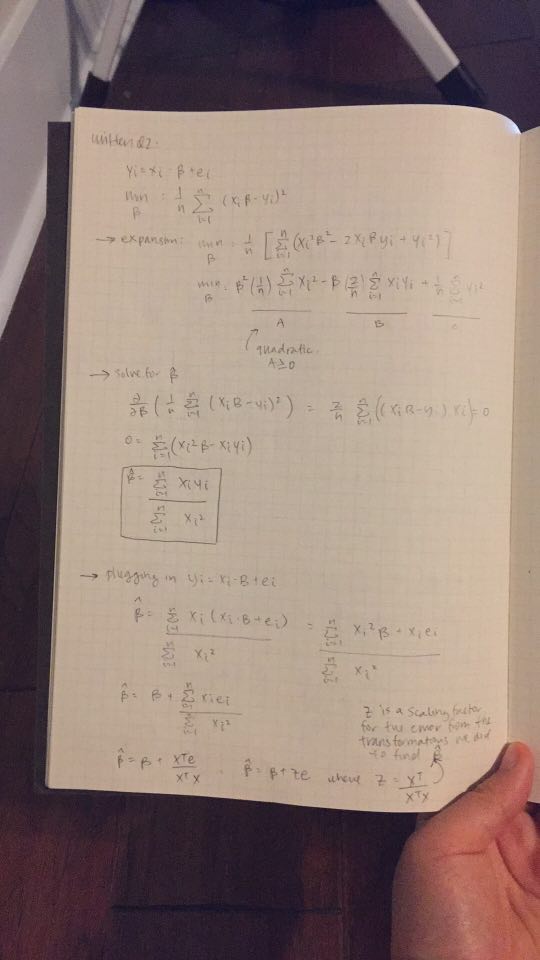 written Q2.
yi = xi · β + ei
min β : 1/n Σ i=1 n (xiβ - yi)²
→ expansion: min β : 1/n [Σ i=1 n (xi²β² - 2xiβyi + yi²)]
min β : β² (1/n) Σ i=1 n xi² - β (2/n) Σ i=1 n xiyi + 1/n Σ i=1 n yi²
A B C
quadratic.
A ≥ 0
→ solve for β̂
∂/∂β (1/n Σ i=1 n (xiβ - yi)²) = 2/n Σ i=1 n ((xiβ - yi) xi) = 0
0 = Σ i=1 n (xi²β - xiyi)
β̂ = Σ i=1 n xiyi / Σ i=1 n xi²
→ plugging in yi = xi · β + ei
β̂ = Σ i=1 n xi (xi · β + ei) / Σ i=1 n xi² = Σ i=1 n xi²β + xiei / Σ i=1 n xi²
β̂ = β + Σ i=1 n xiei / Σ i=1 n xi²
z is a scaling factor
for the error from the
transformations we did
to find β̂
β̂ = β + xᵀe / xᵀx β̂ = β + ze where z = xᵀ / xᵀx